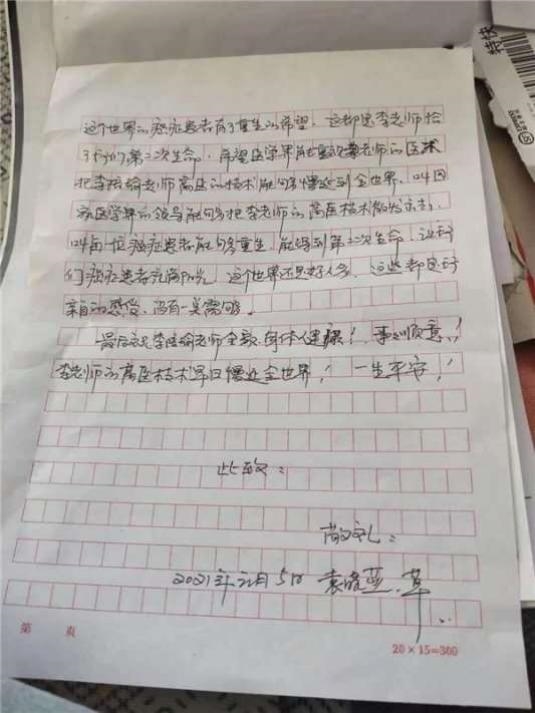 这个世界的癌症患者有了重生的希望，这都是李老师给
了我们第二次生命，希望医学界能重视李老师的医术
把李 老师高医的技术能够传遍到全世界，叫国
家医学界的领导能够把李老师的高医技术 发 
叫每一位癌症患者能够重生，能得到第二次生命，让
们癌症患者充满阳光，这个世界还是好人多，这些都是我
亲自的感受，没有一点 。
最后祝李 老师全家身体健康！事事顺意！
李老师的高医技术早日传遍全世界！一生平安！
此致：
敬礼：
2021年元月5日 袁 草
第 页
20×15=300
特快